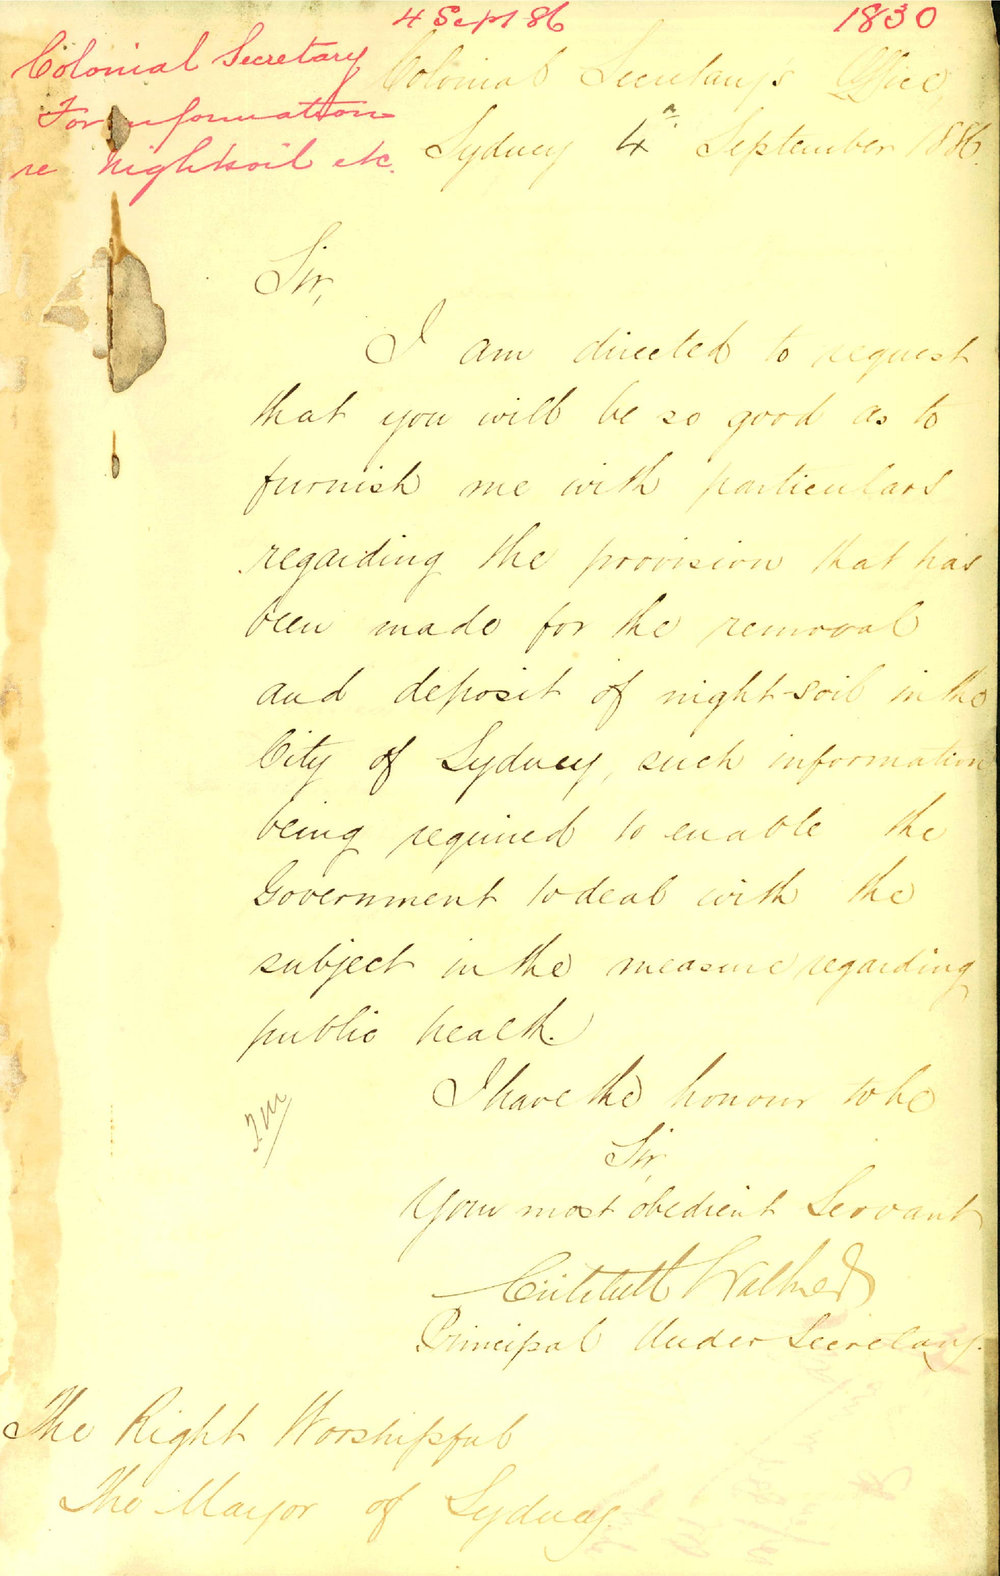 4 Sept 86 1830
Colonial Secretary
For information
re nightsoil etc.
Colonial Secretarys Office
Sydney 4th September 1886.
Sir,
I am directed to request
that you will be so good as to
furnish me with particulars
regarding the provision that has
been made for the removal
and deposit of night-soil in the
City of Sydney, such information
being required to enable the
Government to deal with the
subject in the measure regarding
public health.
I have the honour to be
Sir,
Your most obedient Servant
Critchett Walker
Principal Under Secretary.
The Right Worshipful
The Mayor of Sydney